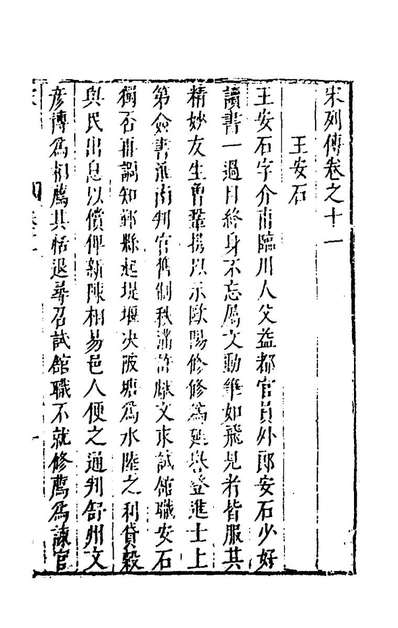 宋列傳卷之十一
王安石
王安石字介甫臨川人父益都官員外郎安石少好
讀書一過目終身不忘屬文動筆如飛見者皆服其
精妙友生曾鞏携以示歐陽修修爲延譽登進士上
第僉書淮南判官舊制秩滿許獻文求試館職安石
獨否再調知鄞縣起堤堰决陂塘爲水陸之利貸穀
與民出息以償俾新陳相易邑人便之通判舒州文
彥博爲相薦其恬退尋召試館職不就修薦爲諫官